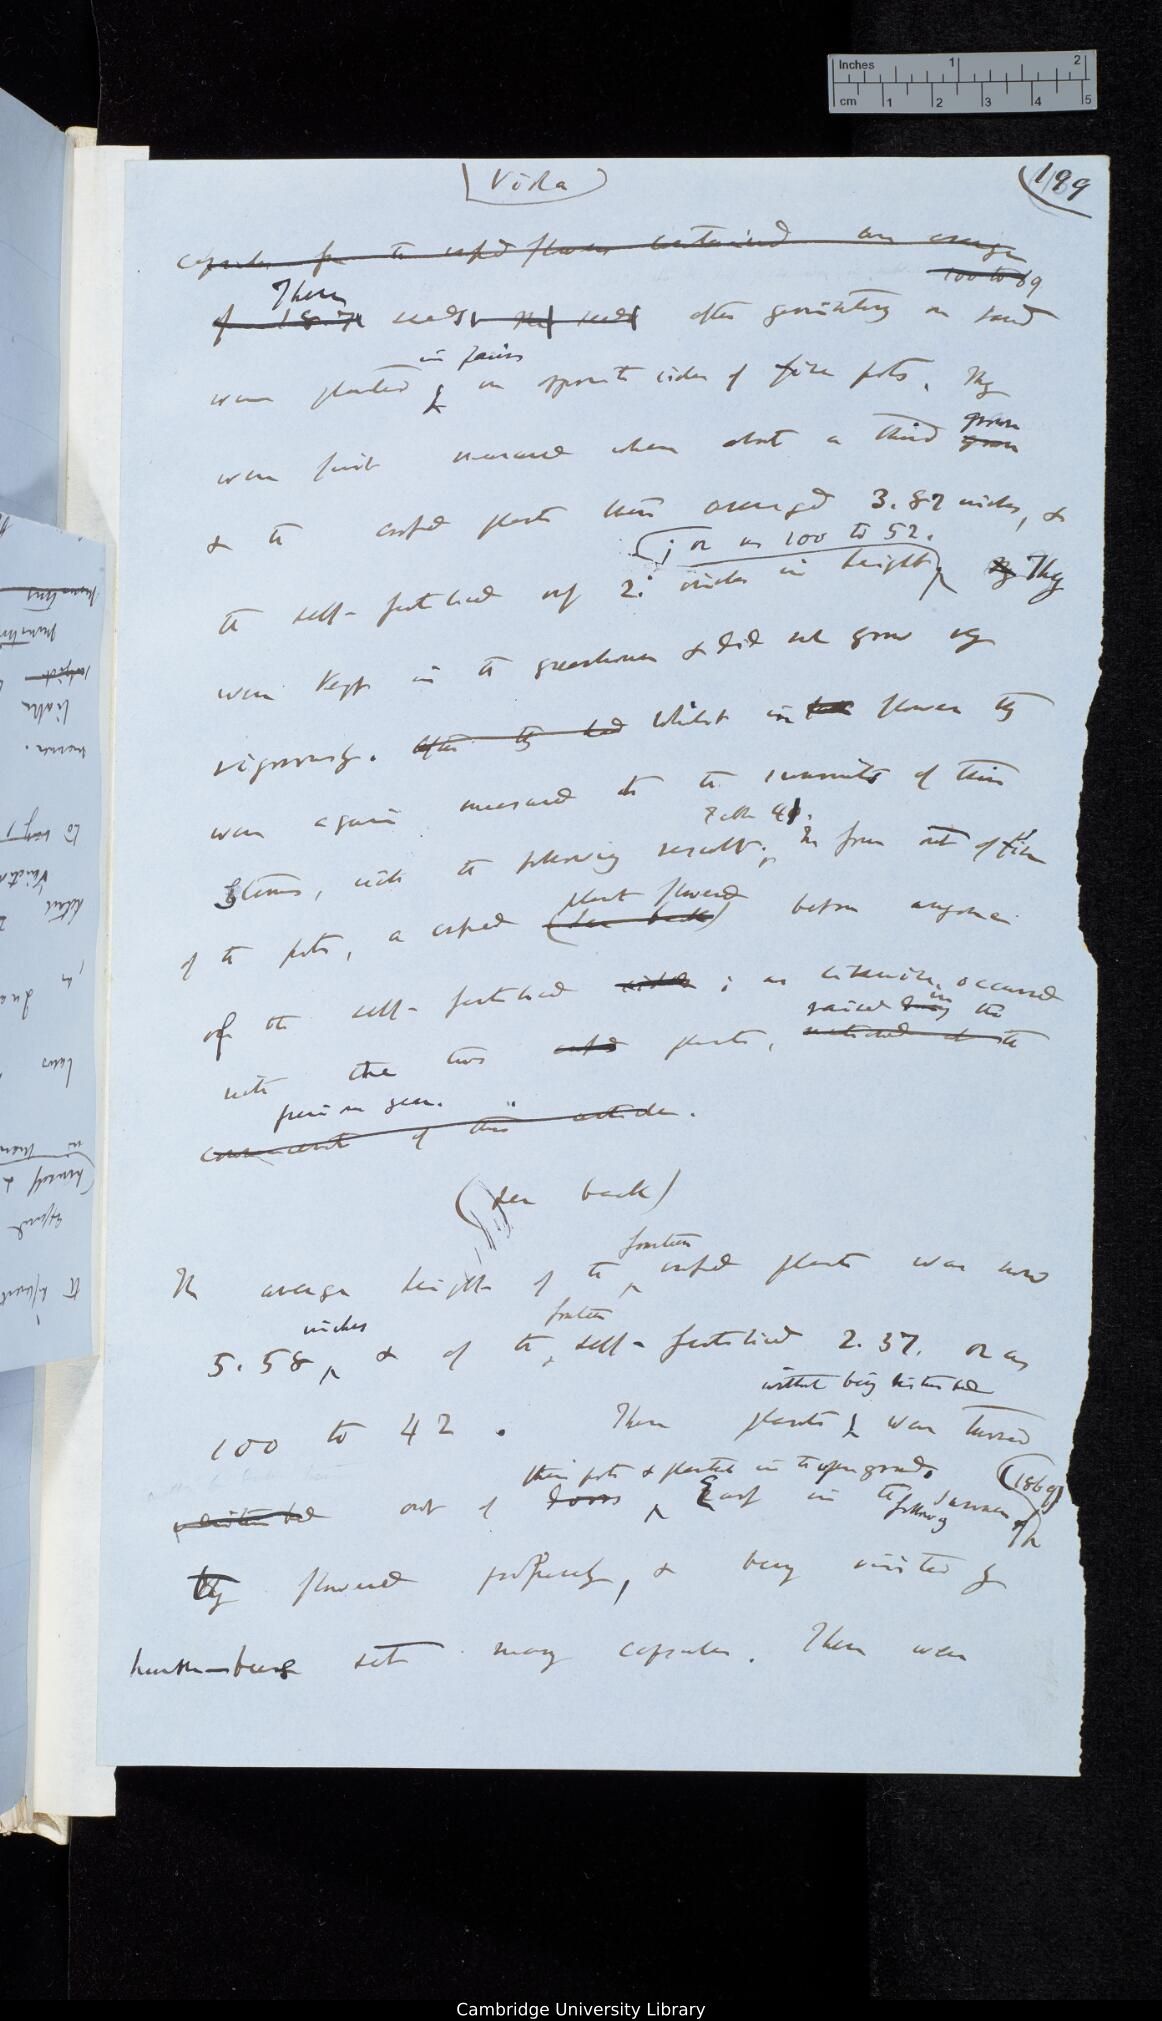 Inches 1 2
cm 1 2 3 4 5
Viola
199
capsules from the crossed flowers contained on an average
100 to 69
These
of 18.7 seeds, seeds after germinating on sand
in pairs
were planted on opposite sides of five pots. They
were first measured when about a third grown
grown
& the crossed plants then averaged 3.87 inches, &
; or as 100 to 52.
the self-fertilised only 2. inches in height They
were kept in the greenhouse & did not grow very
vigorously. After they had Whilst in flower they
were again measured to the summits of their
Table
stems, with the following result. In four out of the five
plant flowered
of the pots, a crossed (see back) before any one
of the self-fertilised ; as likewise occurred
raised in the
with the two crossed plants, the
previous year.
of this
(See back)
fourteen
The average height of the crossed plants was now
inches fourteen
5.58, & of the self-fertilised 2.37. or as
without being disturbed
100 to 42. These plants were turned
their pots & planted in the open ground. (1869)
out of Early in the following summer of
they flowered profusely, & being visited by
humble-bees set many capsules. These were
Cambridge University Library